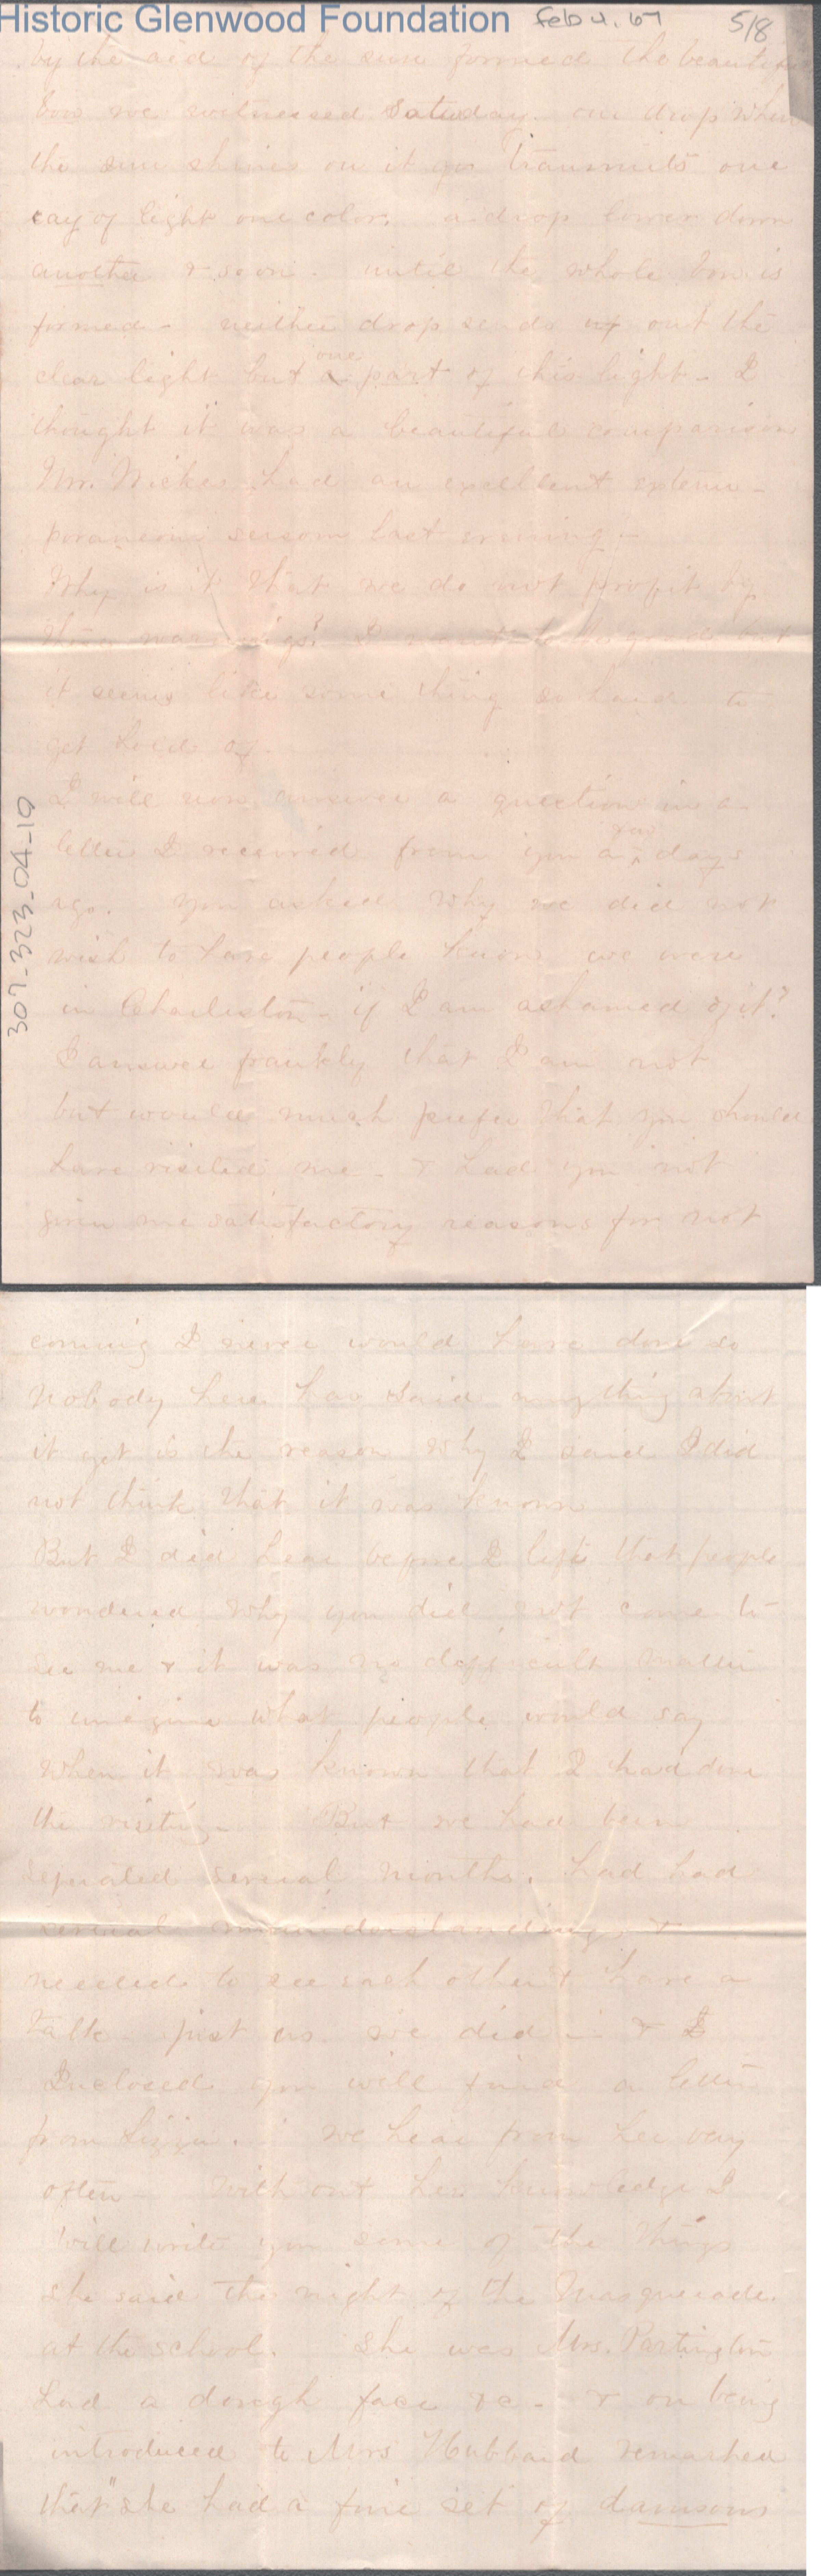 Historic Glenwood Foundation Feb 4. 67 5/8
by the aid of the sun formed the beautiful
bow we witnessed Saturday. one drop when
the sun shines on it yor transmits one
ray of light one color. a drop lower down
another & so on. until the whole bow is
formed - neither drop sends up out the
clear light but a one part of this light - I
thought it was a beautiful comparison
Mr. had an excellent extem-
poraneous sermon last evening -
Why is it that we do not profit by
these warnings? I want to be good but
it seems like some thing so hard to
get hold of.
I will now answer a question in a
letter I received from you a few days
ago. You asked why we did not
wish to have people know we were
in Charleston - if I am ashamed of it?
I answer frankly that I am not
but would much prefer that you should
have visited me - & had you not
given me satisfactory reasons for not
307-323-04-19
coming I never would have done so
Nobody here has said any thing about
it yet is the reason why I said I did
not think that it was known
But I did hear before I left that people
wondered why you did not come to
see me & it was no difficult matter
to imagine what people would say
when it was known that I had done
the visiting - But we had been
seperated several months, had had
several misunderstandings &
needed to see each other & have a
talk - just as we did - & I
Inclosed you will find a letter
from Lizzie. We hear from her very
often - Without her knowledge I
will write you some of the things
she said the night of the Masquerade.
at the school. She was Mrs. Partington
had a dough face &c - & on being
introduced to Mrs Hubbard remarked
that "she had a fine set of damsons